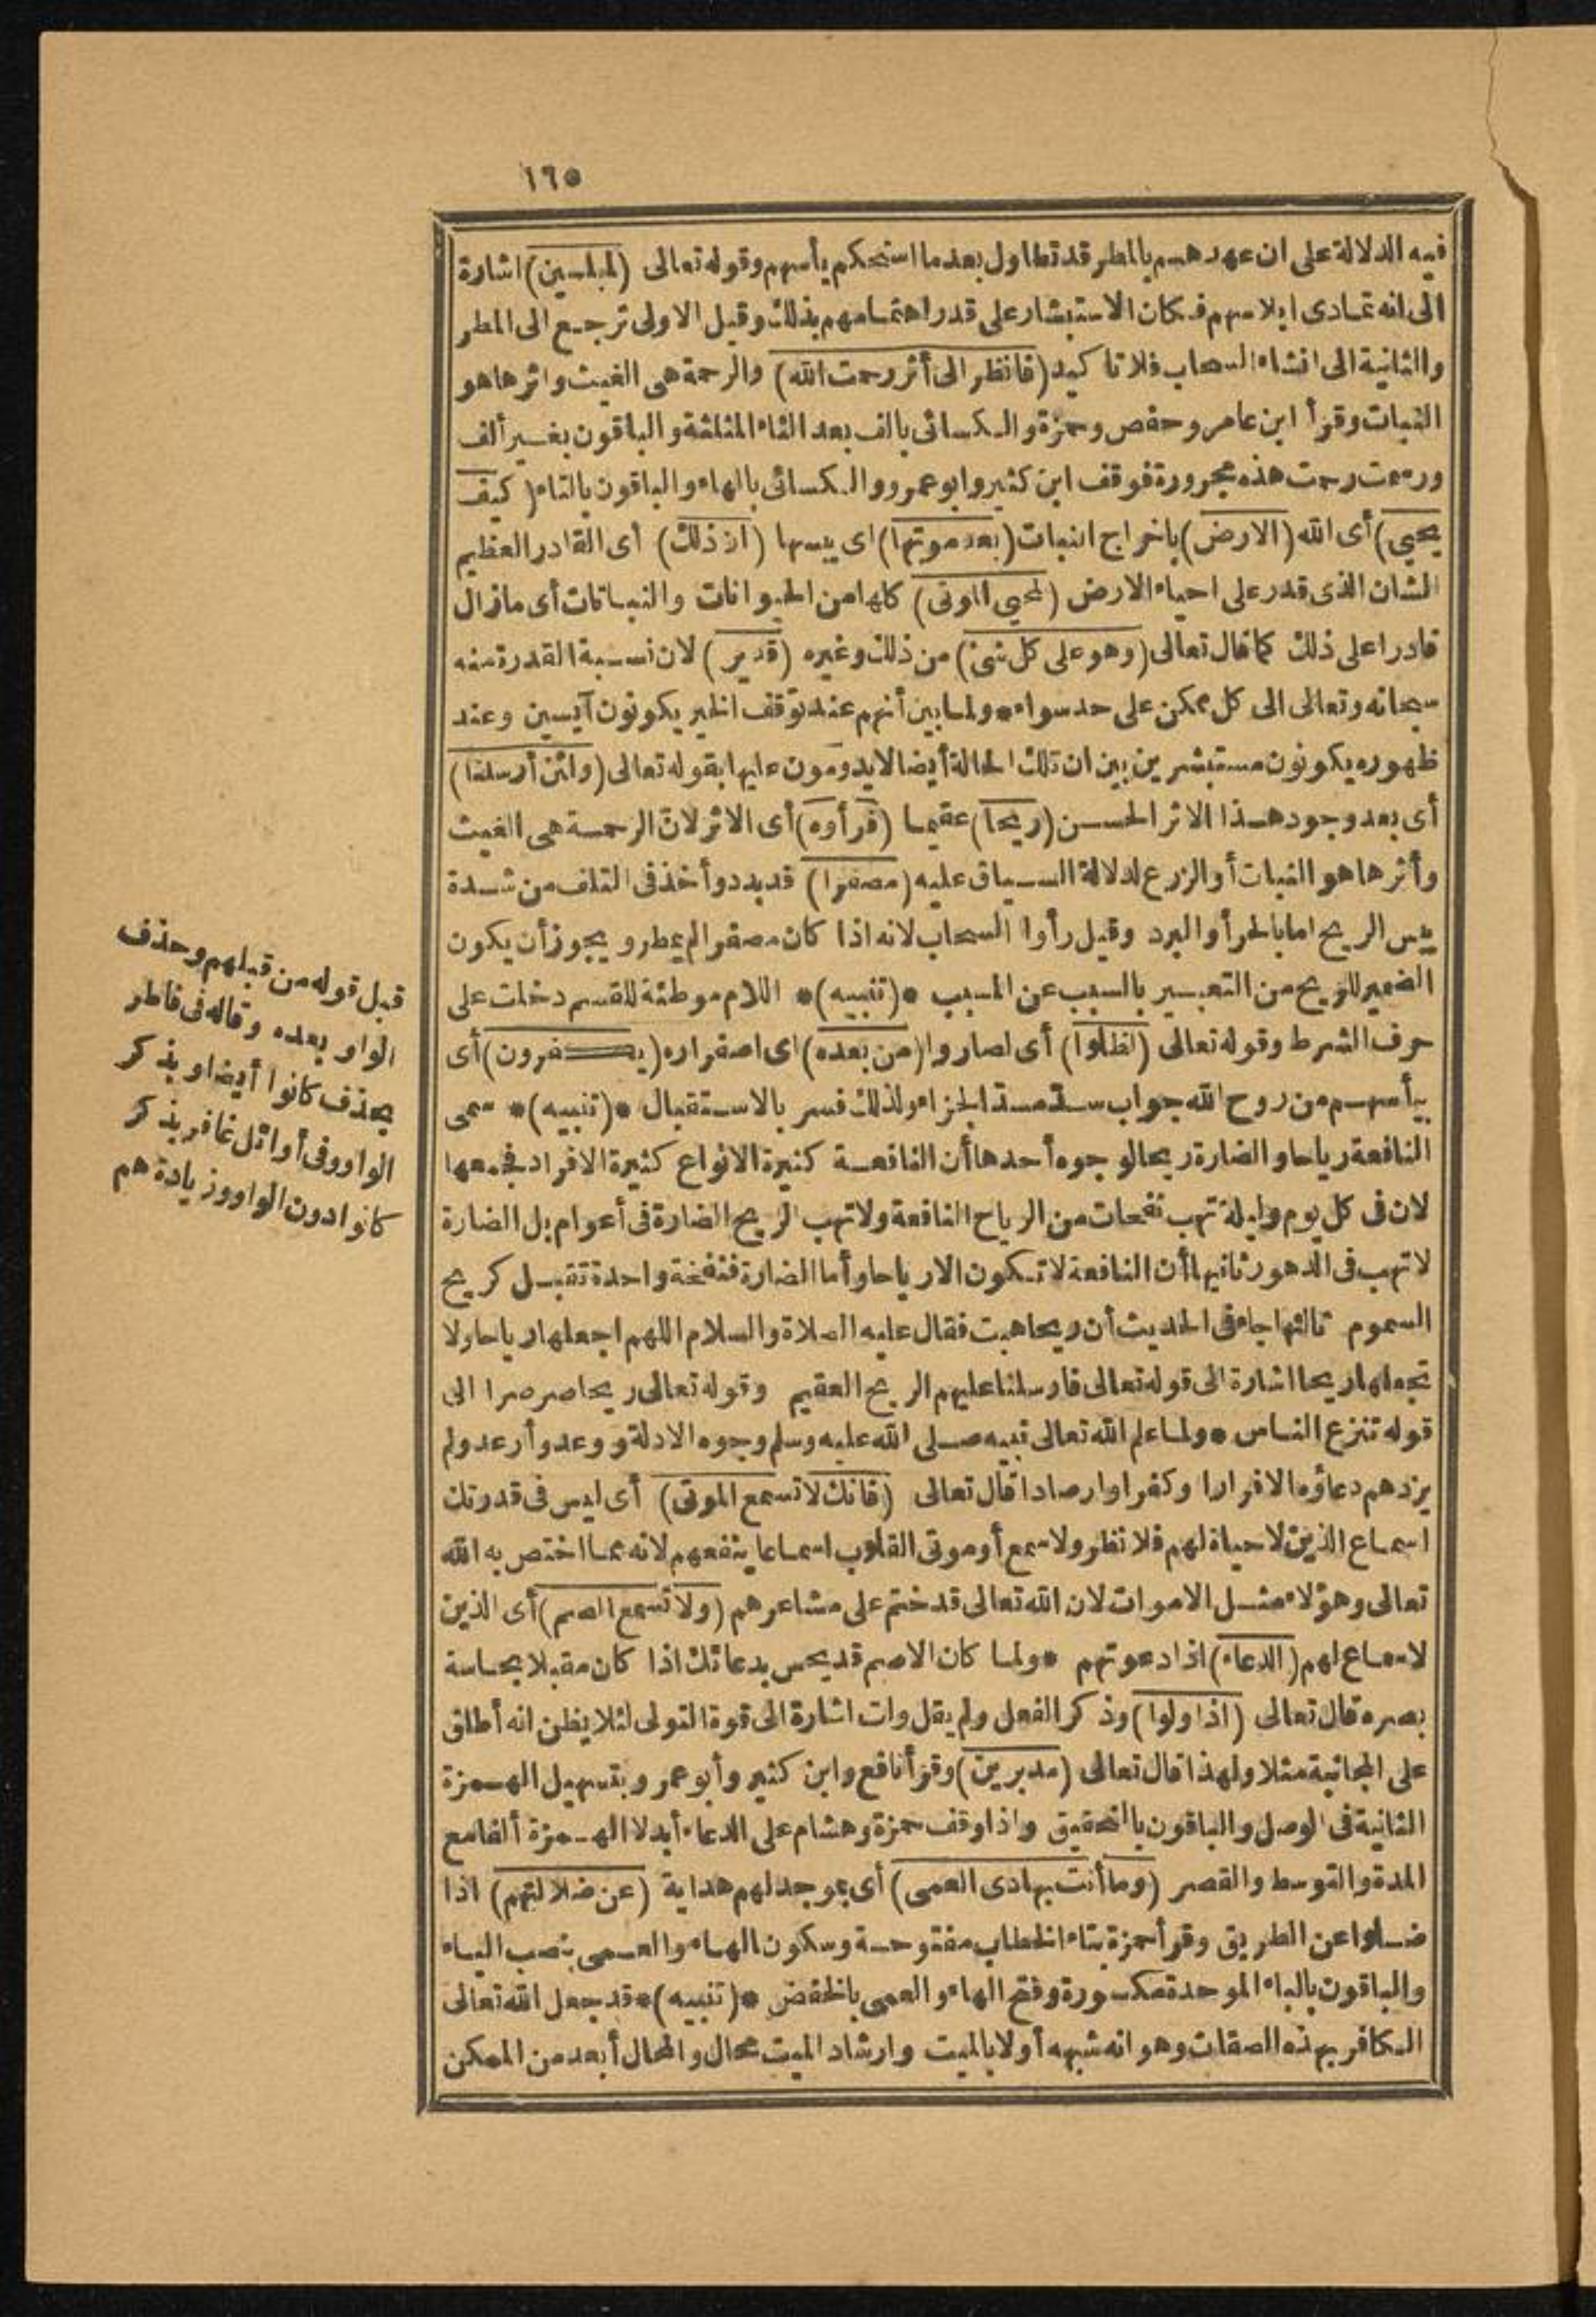 ١٦٥
فيه الدلالة على ان عهدهم بالمطر قد تطاول بعدما استحكم يأسهم وقوله تعالى (لمبلسين) اشارة
الى انه تمادى ابلاسهم فكان الاستبشار على قدر اهتمامهم بذلك وقيل الاولى ترجع الى المطر
والثانية الى انشاء السحاب فلا تاكيد (فانظر الى أثر رحمت الله) والرحمة هى الغيث واثرها هو
النبات وقرأ ابن عامر وحفص وحمزة والكسائى بالف بعد الثاء المثلثة والباقون بغير ألف
ورسمت رحمت هذه مجرورة فوقف ابن كثير وابو عمرو والكسائى بالهاء والباقون بالتاء (كيف
يحيي) أى الله (الارض) باخراج النبات (بعد موتها) اى يبسها (ان ذلك) أى القادر العظيم
الشان الذى قدر على احياء الارض (لمحيي الموتى) كلها من الحيوانات والنباتات أى مازال
قادرا على ذلك كما قال تعالى (وهو على كل شئ) من ذلك وغيره (قدير) لان نسبة القدرة منه
سبحانه وتعالى الى كل ممكن على حد سواء * ولما بين أنهم عند توقف الخير يكونون آيسين وعند
ظهوره يكونون مستبشرين بين ان تلك الحالة أيضا لا يدومون عليها بقوله تعالى (ولئن أرسلنا)
أى بعد وجود هذا الاثر الحسن (ريحا) عقيما (فرأوه) أى الاثر لان الرحمة هى الغيث
وأثرها هو النبات أو الزرع لدلالة السياق عليه (مصفرا) قد بدد وأخذ فى التلف من شدة
يبس الريح اما بالحر أو البرد وقيل رأوا السحاب لانه اذا كان مصفر الم يمطر ويجوز أن يكون
الضمير للريح من التعبير بالسبب عن المسبب * (تنبيه) * اللام موطئة للقسم دخلت على
حرف الشرط وقوله تعالى (لظلوا) أى لصاروا (من بعده) اى اصفراره (يكفرون) أى
بيأسهم من روح الله جواب سد مسد الجزاء ولذلك فسر بالاستقبال * (تنبيه) * سمى
النافعة رياحا والضارة ريحا لوجوه أحدها أن النافعة كثيرة الانواع كثيرة الافراد فجمعها
لان فى كل يوم وليلة تهب نفحات من الرياح النافعة ولا تهب الريح الضارة فى أعوام بل الضارة
لا تهب فى الدهور ثانيها أن النافعة لا تكون الا رياحا وأما الضارة فنفخة واحدة تقتل كريح
السموم ثالثها جاء فى الحديث أن ريحا هبت فقال عليه الصلاة والسلام اللهم اجعلها رياحا ولا
تجعلها ريحا اشارة الى قوله تعالى فارسلنا عليهم الريح العقيم وقوله تعالى ريحا صرصرا الى
قوله تنزع الناس * ولما علم الله تعالى نبيه صلى الله عليه وسلم وجوه الادلة ووعد وأرعد ولم
يزدهم دعاؤه الا فرارا وكفرا وارصادا قال تعالى (فانك لا تسمع الموتى) أى ليس فى قدرتك
اسماع الذين لا حياة لهم فلا نظر ولا سمع أو موتى القلوب اسماعا ينفعهم لانه مما اختص به الله
تعالى وهؤلاء مثل الاموات لان الله تعالى قد ختم على مشاعرهم (ولا تسمع الصم) أى الذين
لا سماع لهم (الدعاء) اذا دعوتهم * ولما كان الاصم قد يحس بدعائك اذا كان مقبلا بحاسة
بصره قال تعالى (اذا ولوا) وذكر الفعل ولم يقل ولت اشارة الى قوة التولى لئلا يظن انه أطلق
على المجانبة مثلا ولهذا قال تعالى (مدبرين) وقرأ نافع وابن كثير وأبو عمرو بتسهيل الهمزة
الثانية فى الوصل والباقون بالتحقيق واذا وقف حمزة وهشام على الدعاء أبدلا الهمزة ألفا مع
المد والتوسط والقصر (وما أنت بهادى العمى) أى بموجد لهم هداية (عن ضلالتهم) اذا
ضلوا عن الطريق وقرأ حمزة بتاء الخطاب مفتوحة وسكون الهاء والعمى بنصب الياء
والباقون بالباء الموحدة مكسورة وفتح الهاء والعمى بالخفض * (تنبيه) * قد جعل الله تعالى
الكافر بهذه الصفات وهو انه شبهه أولا بالميت وارشاد الميت محال والمحال أبعد من الممكن
قبل قوله من قبلهم وحذف
الواو بعده وقاله فى فاطر
بحذف كانوا أيضا وبذكر
الواو وفى أوائل غافر بذكر
كانوا دون الواو وزيادة هم